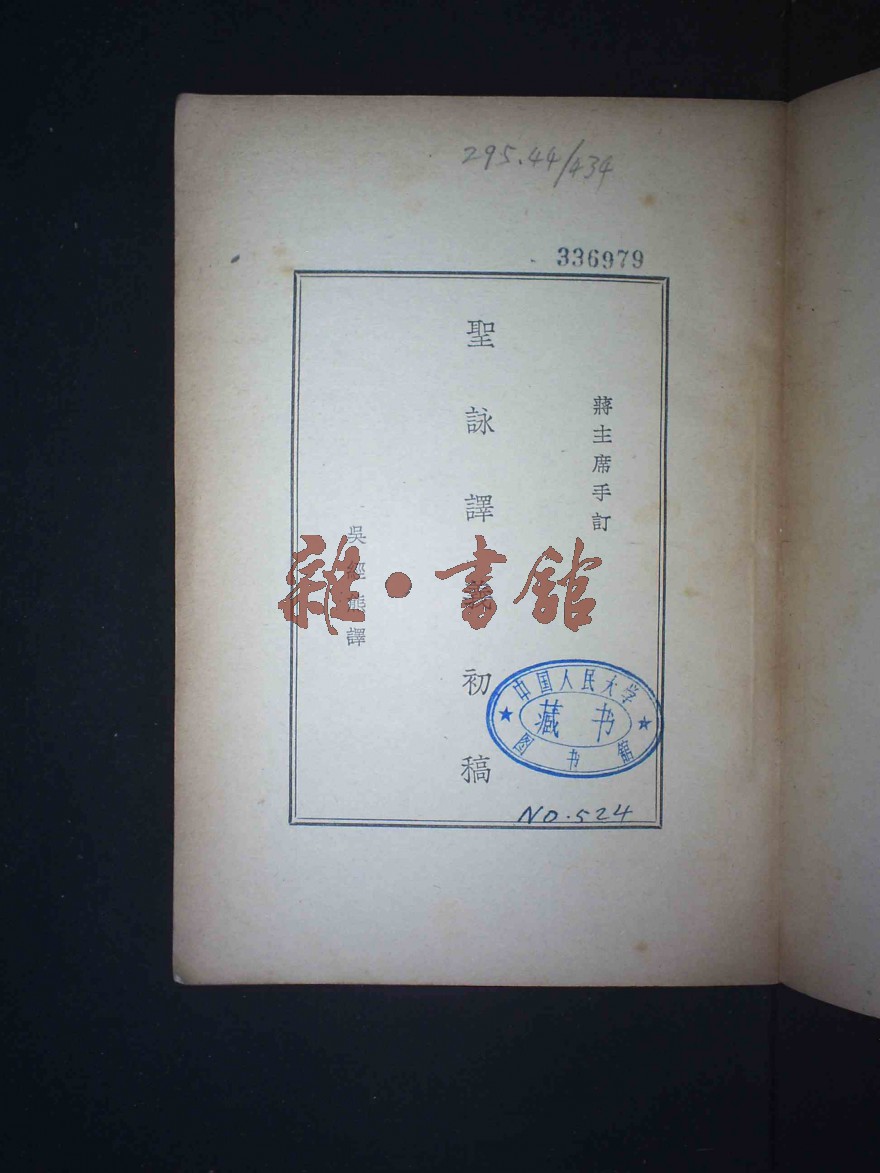 295.44/434
336979
蔣主席手訂
聖詠譯義初稿
吳經熊譯
雜•書館
中国人民大学
藏书
图书館
NO.524